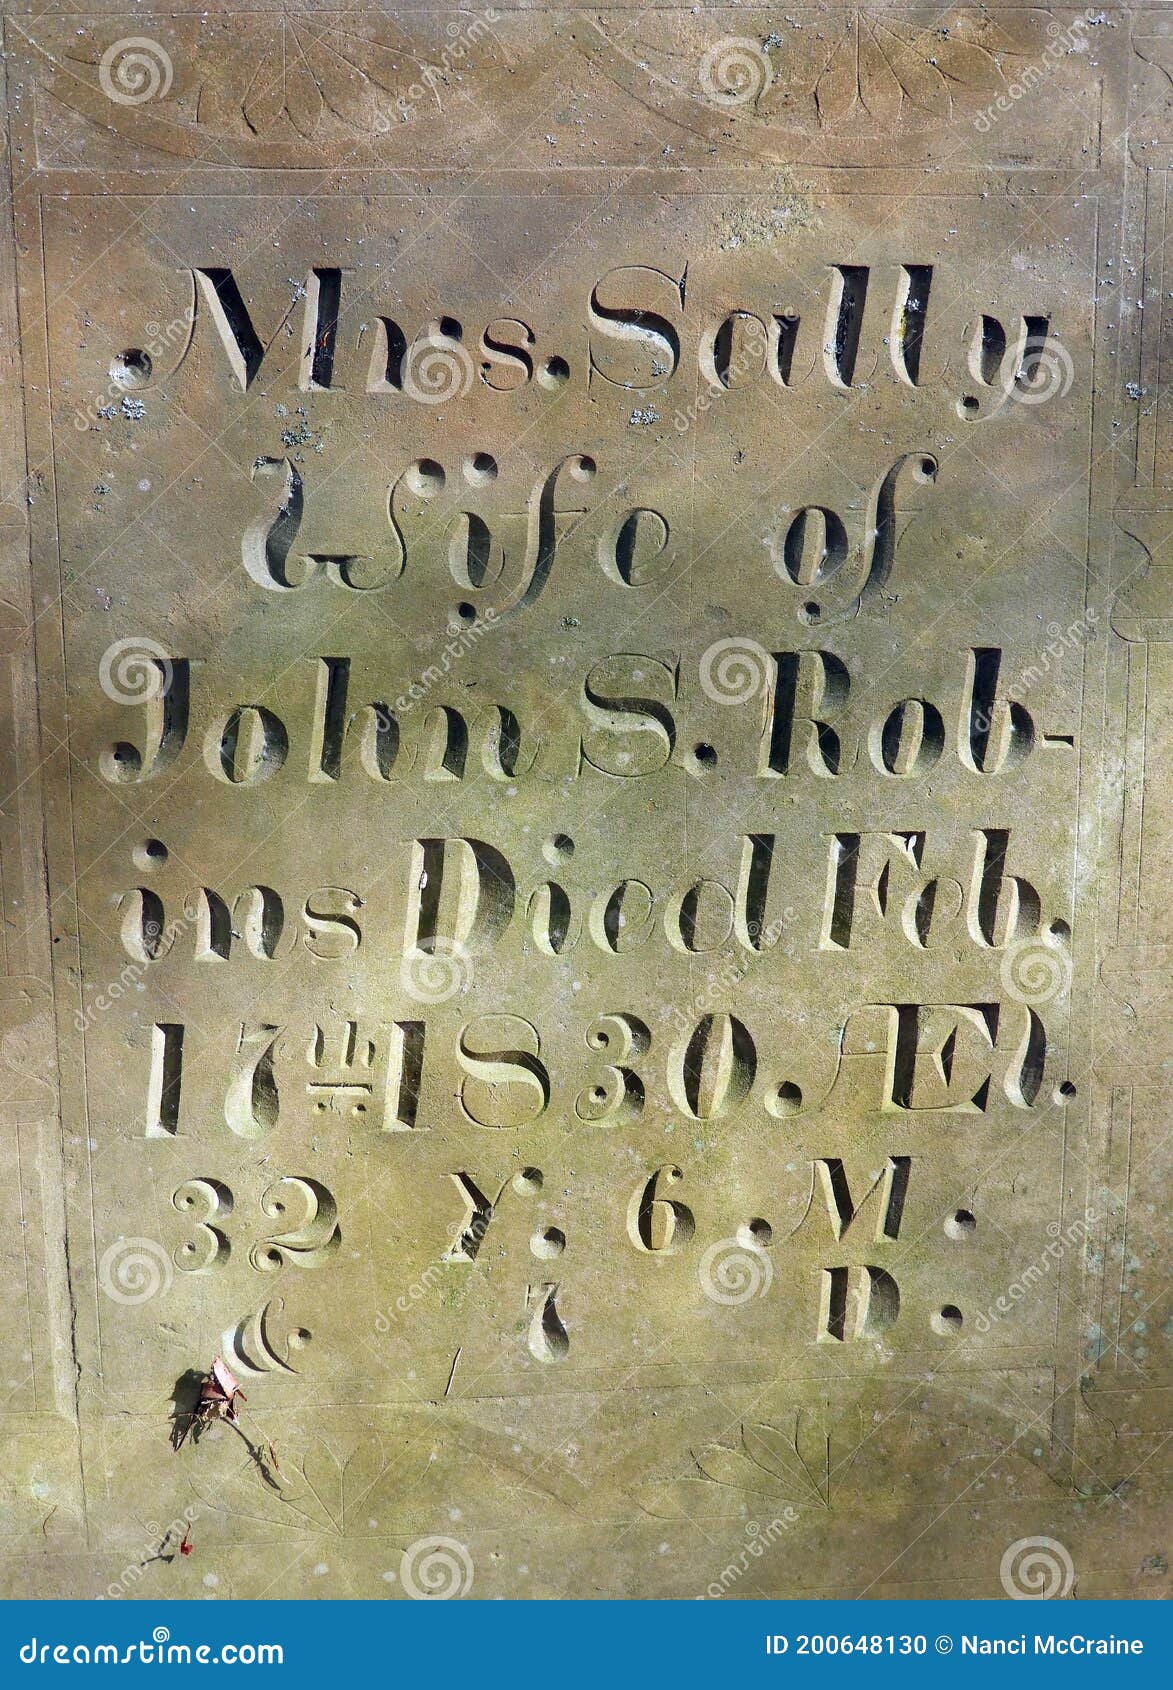 Mrs. Sally
Wife of
John S. Rob-
ins Died Feb.
17th 1830. Æt.
32 Y. 6. M.
& 7 D.
dreamstime.com
ID 200648130 © Nanci McCraine